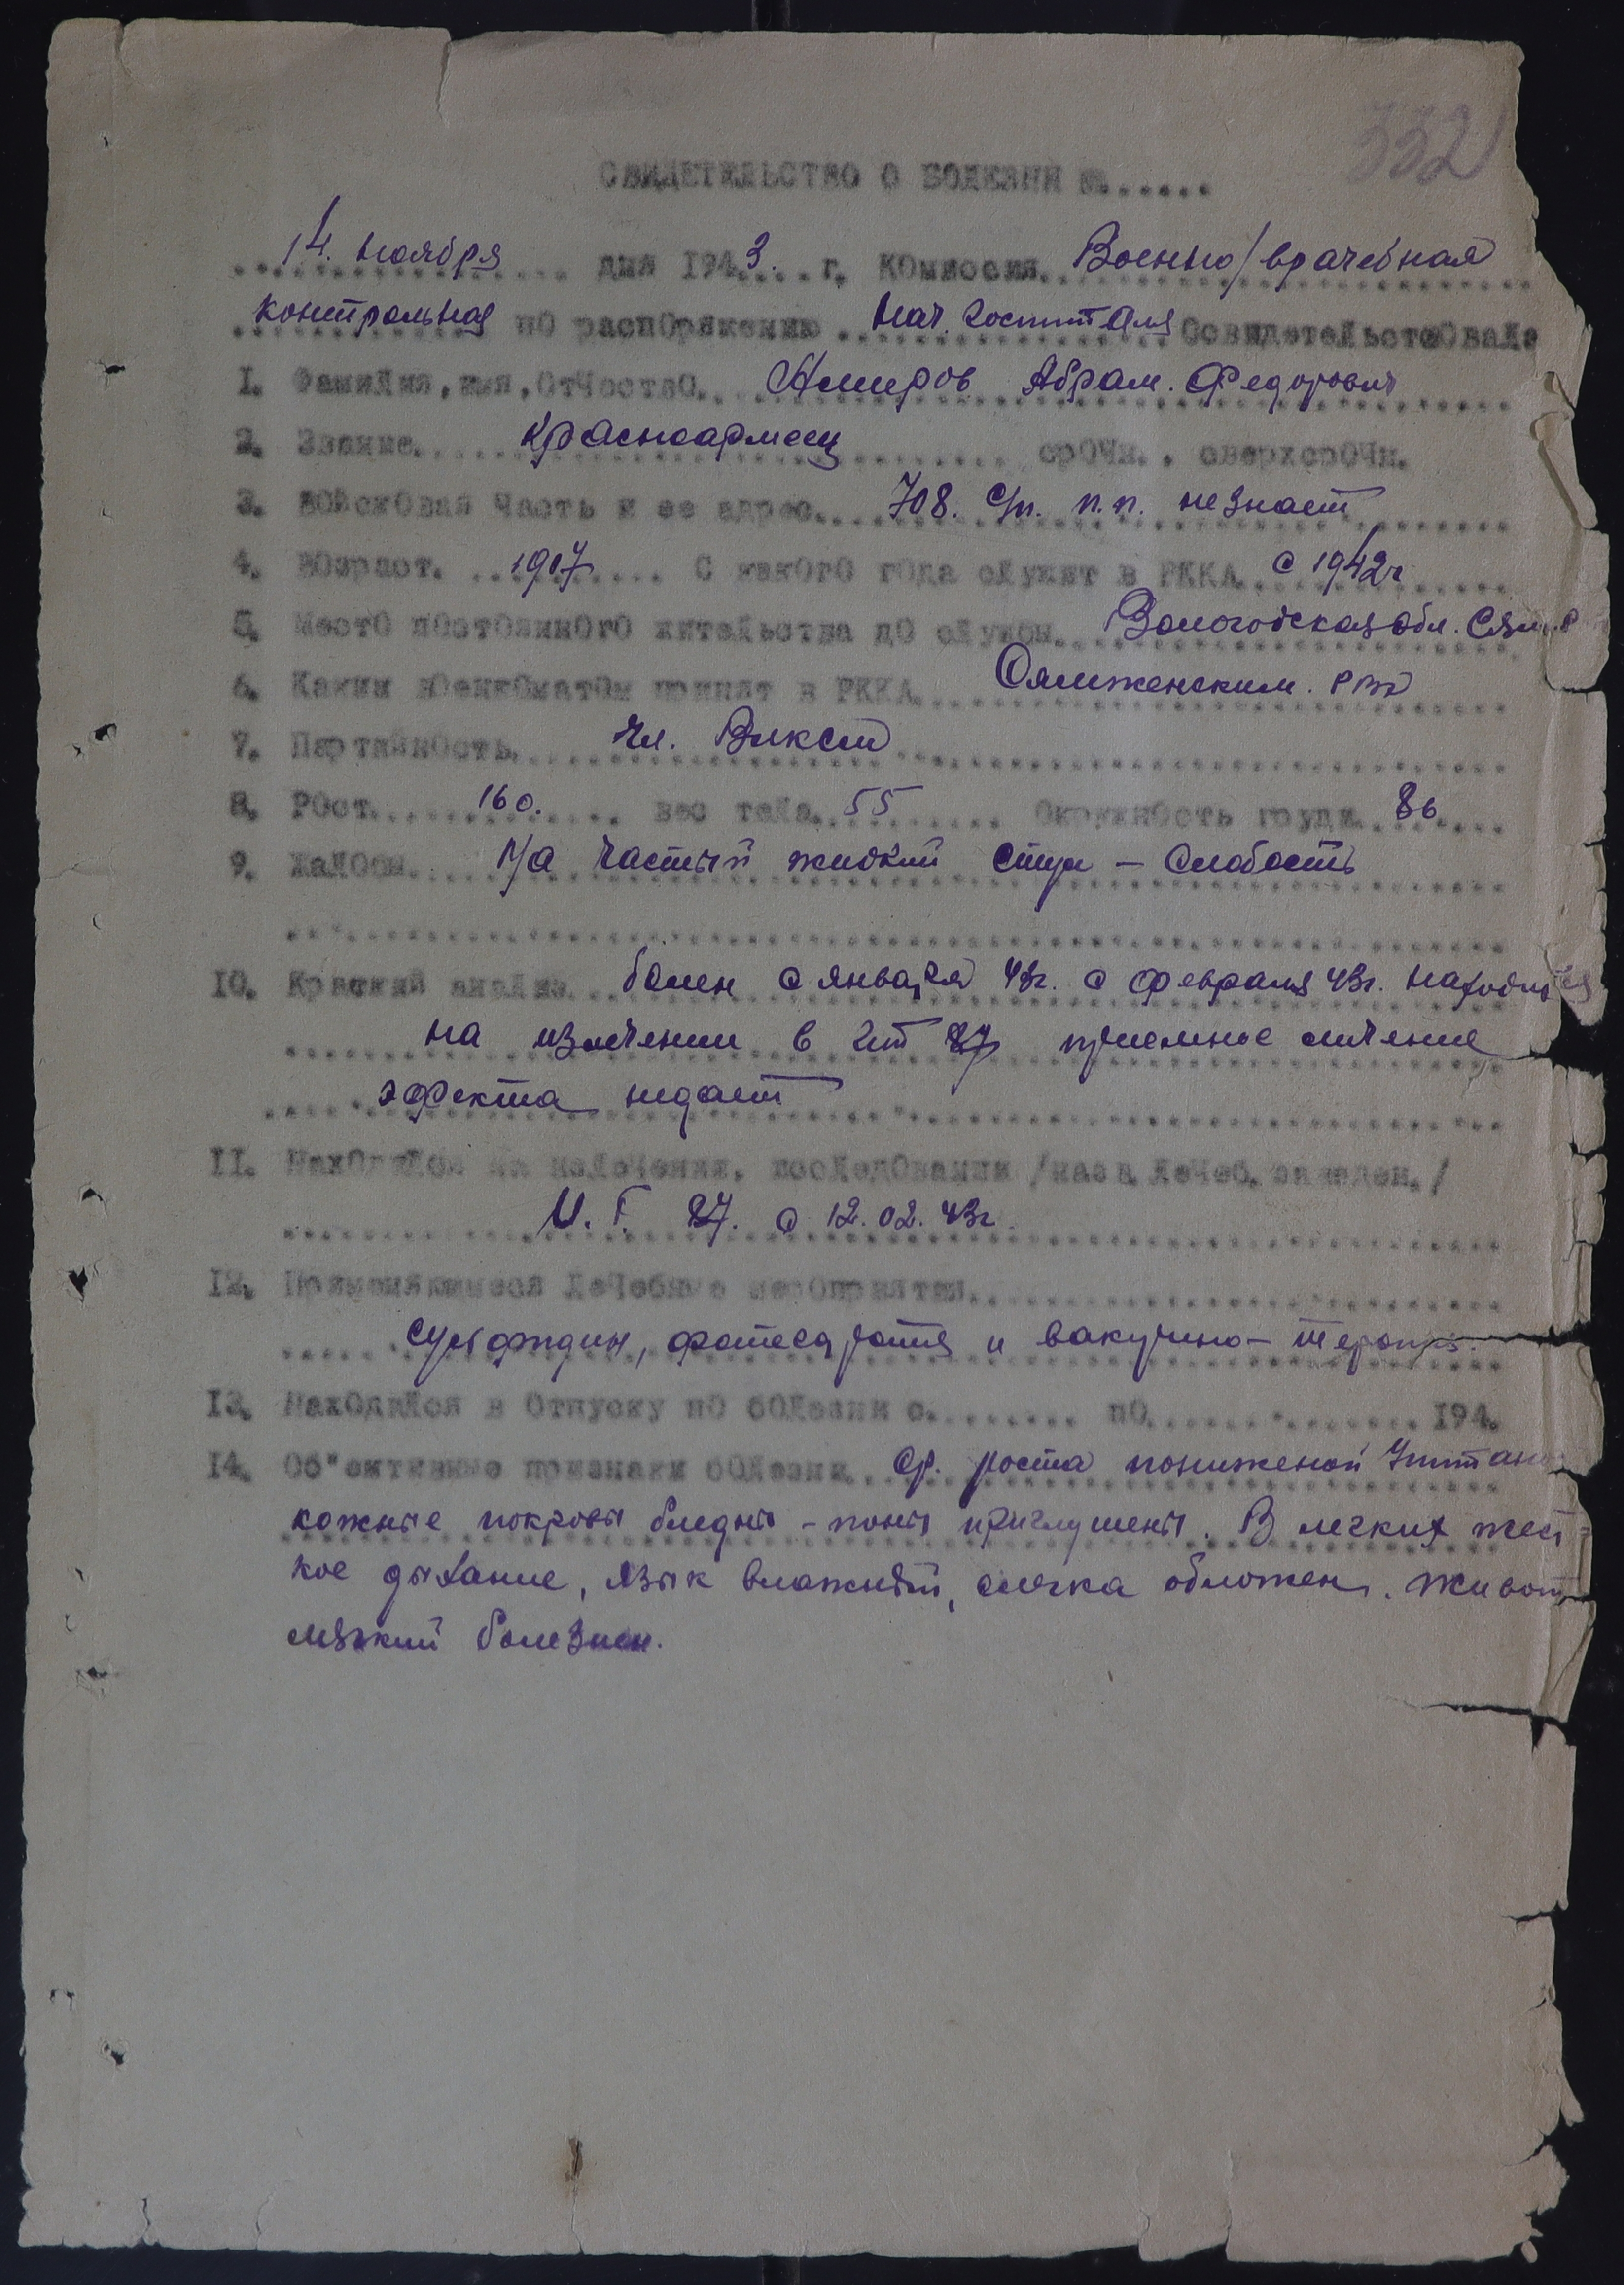 332
СВИДЕТЕЛЬСТВО О БОЛЕЗНИ №......
14. ноября дня 1943. г. Комиссия Военно/врачебная
контрольная по распоряжению нач. госпиталя Освидетельствовала
1. Фамилия, имя, отчество Абрам. Федорович
2. Звание красноармеец срочн., сверхсрочн.
3. Войсковая часть и ее адрес 708. с/п. п.п. не знает
4. Возраст. 1907 С какого года служит в РККА с 1942г
5. Место постоянного жительства до службы Вологодская обл.
6. Каким военкоматом принят в РККА Сямженским. РВК
7. Партийность чл. Влксм
8. Рост 160. вес тела 55 Окружность груди 86
9. Жалобы На частый жидкий стул – слабость
10. Краткий анализ болен с января 43г. с февраля 43г. находится
на излечении в 87 лечение
эфекта недает
11. Находился на излечении, исследовании /назв. лечеб. заведен./
87. с 12.02.43г.
12. Применявшиеся лечебные мероприятия
сульфидин, и вакцино-терапия.
13. Находился в отпуску по болезни с........ по............... 194.
14. Об"ективные признаки болезни ср. роста пониженой
кожные покровы бледны – тоны приглушены. В легких жест
кое дыхание, язык влажный, слегка обложен. Живот
мягкий болезнен.